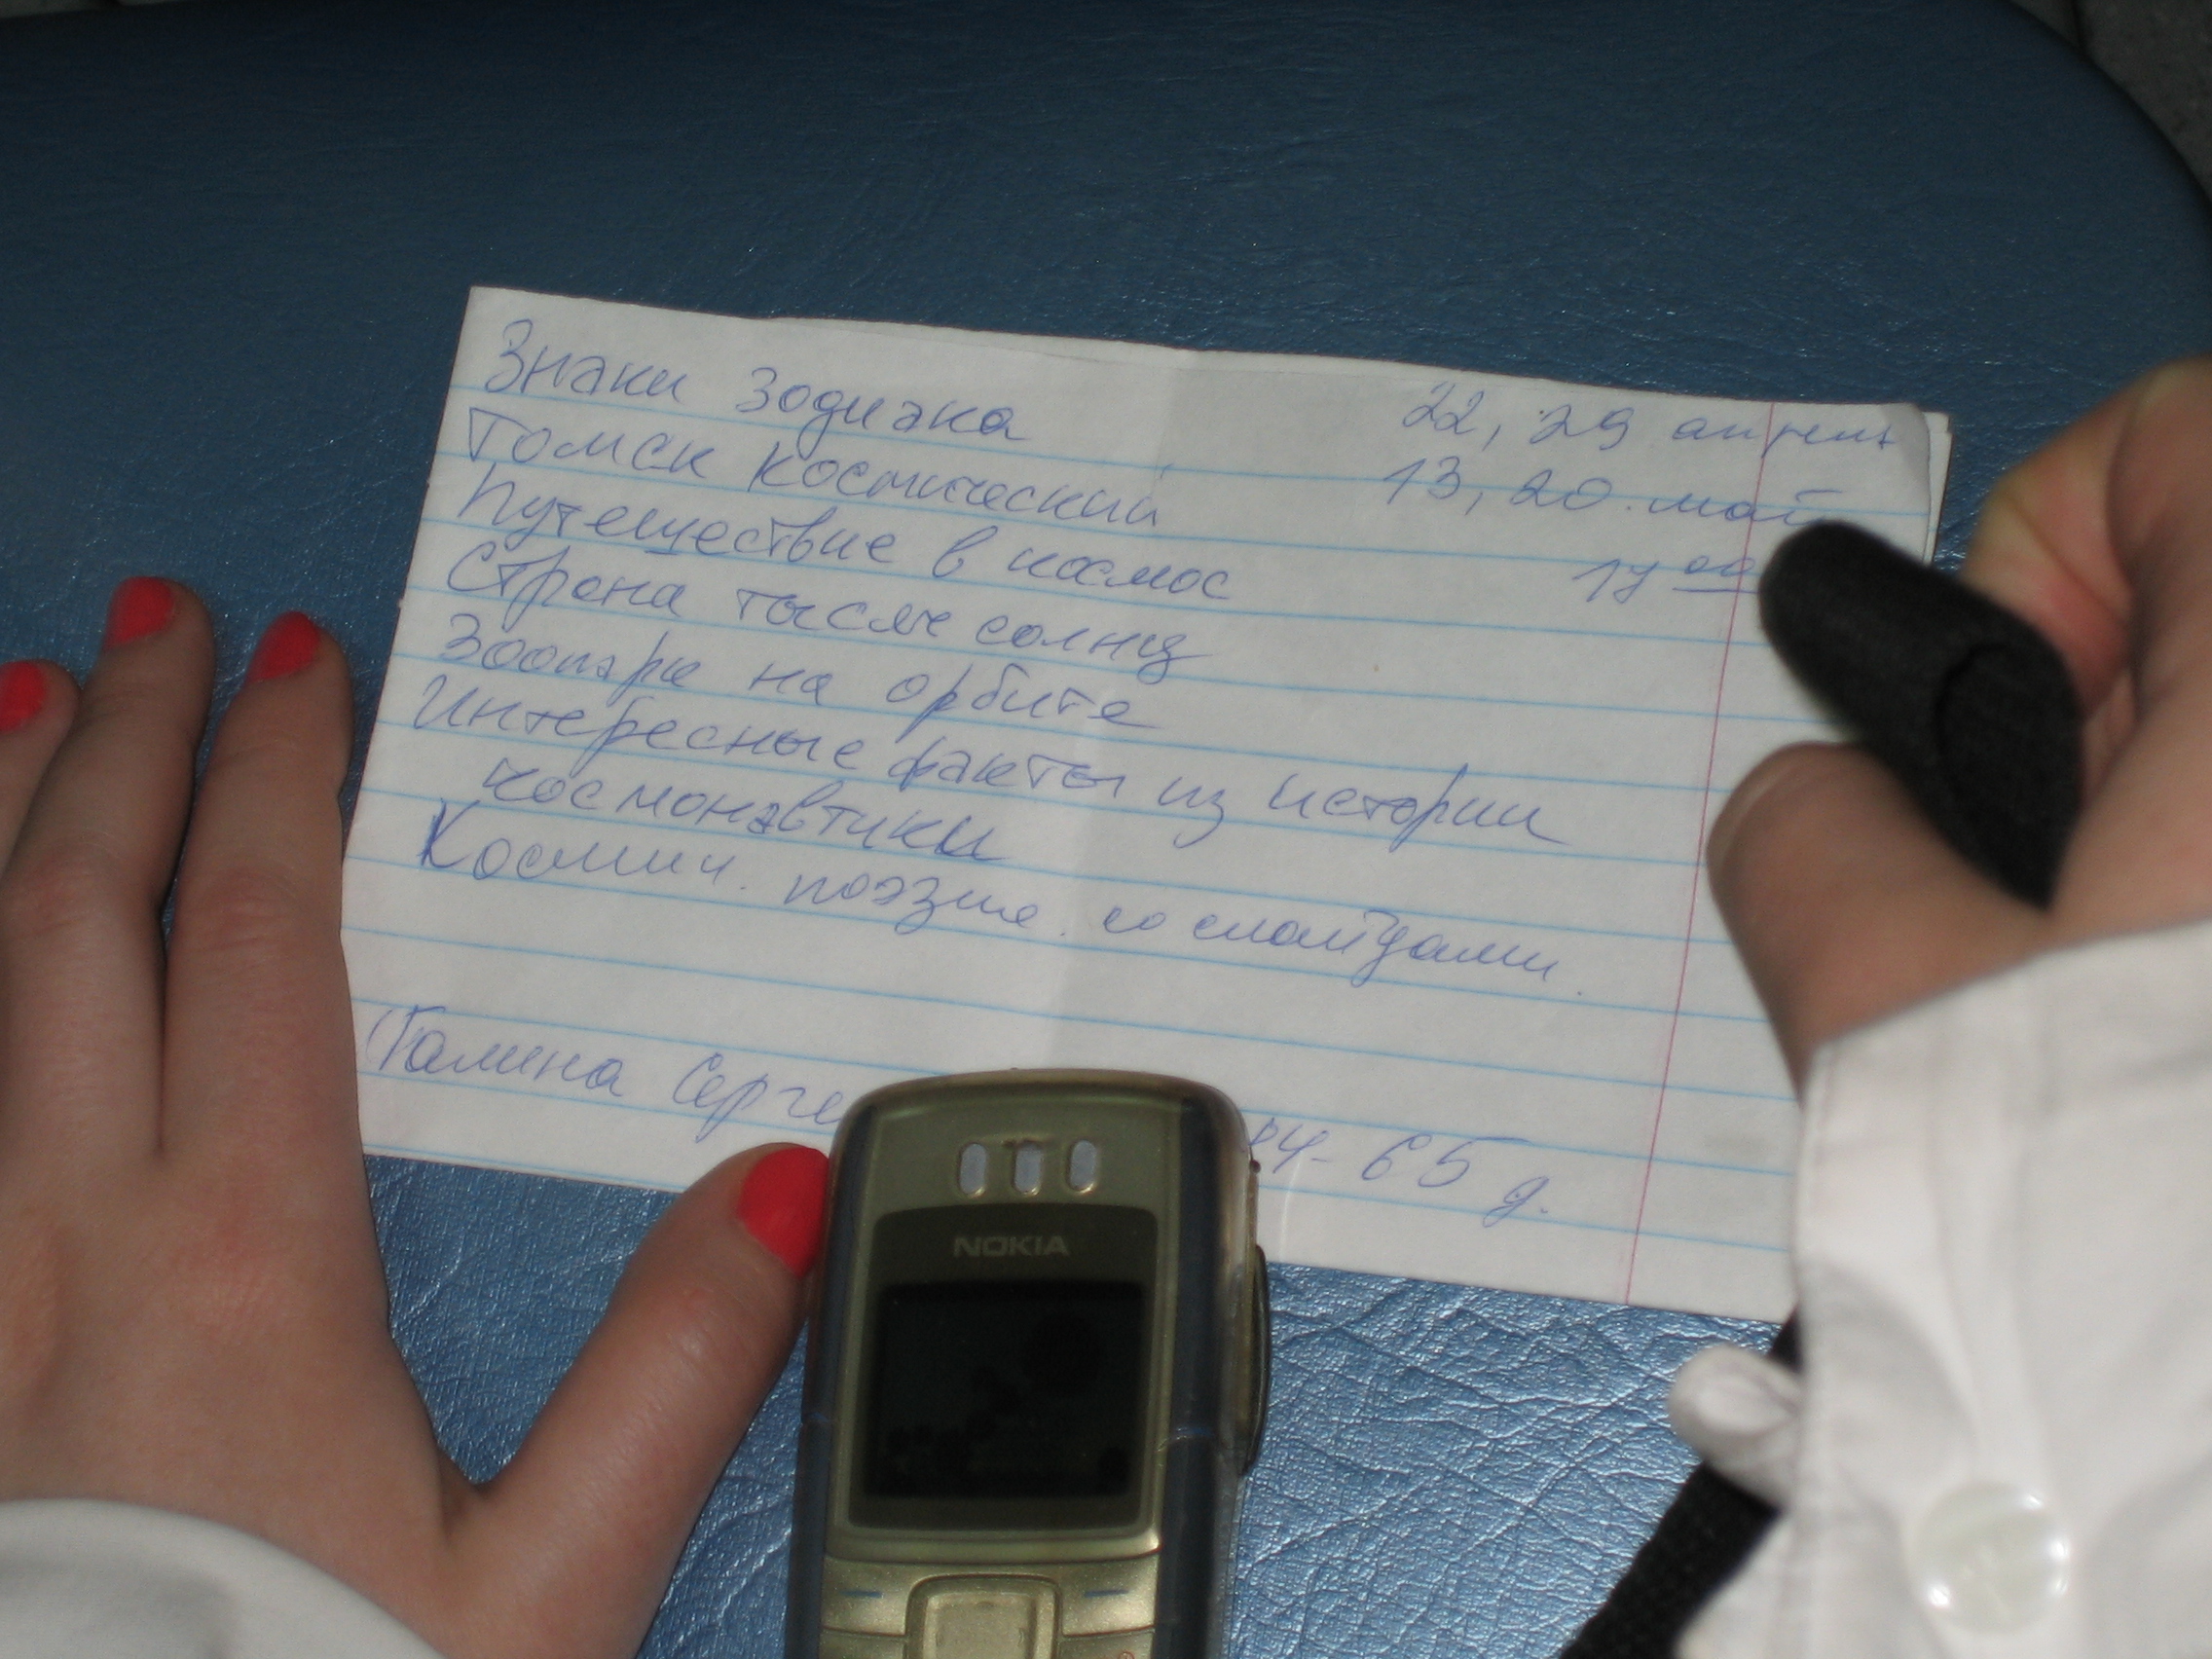 Знаки Зодиака 22, 29 апреля
Томск космический 13, 20 май
Путешествие в космос 17 00
Страна тысяч солнц
Зоопарк на орбите
Интересные факты из истории
космонавтики
Космич. поэзия со слайдами.
Галина Серге 4-65 д.
NOKIA